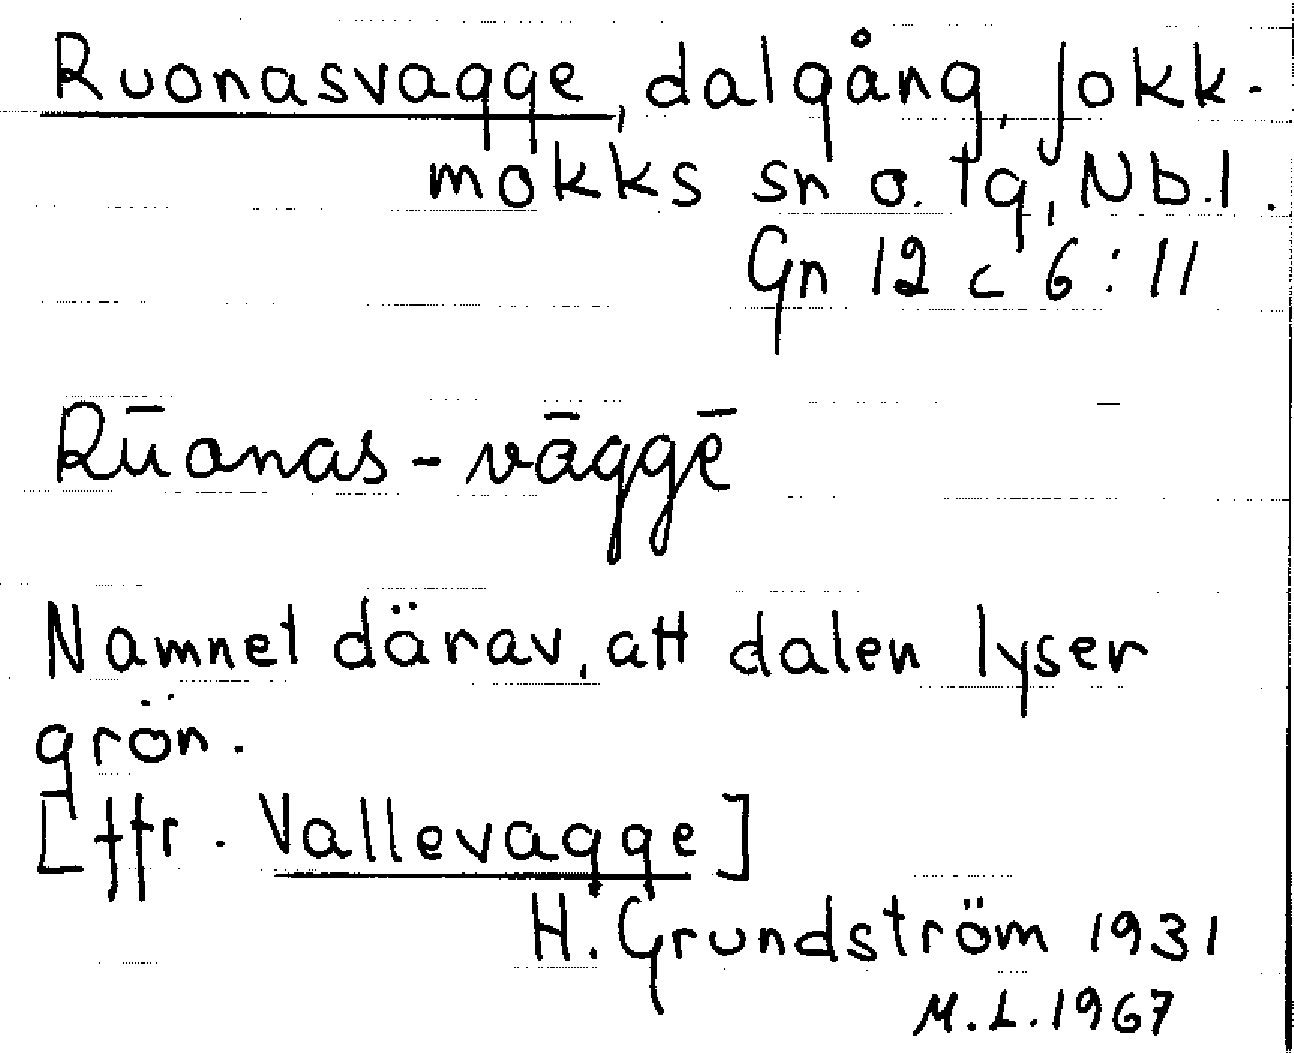 Ruonasvagge, dalgång, Jokk-
mokks sn o. tg, Nb.l.
Gn 12 c 6:11
Rūonas-vāggē
Namnet därav, att dalen lyser
grön.
[ffr. Vallevagge]
H. Grundström 1931
M.L. 1967